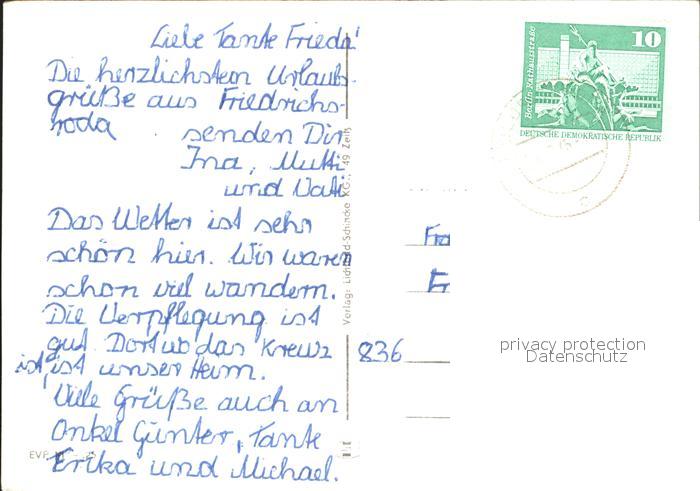 Liebe Tante Frieda!
Die herzlichsten Urlaubs-
grüße aus Friedrichs-
roda senden Dir
Ina, Mutti
und Vati
Das Wetter ist sehr
schön hier. Wir waren
schon viel wandern.
Die Verpflegung ist
gut. Dort wo das Kreuz
ist, ist unser Heim.
Viele Grüße auch an
Onkel Günter, Tante
Erika und Michael.
EVP
Fra
Er
836
privacy protection
Datenschutz
10
Berlin, Rathausstraße
DEUTSCHE DEMOKRATISCHE REPUBLIK